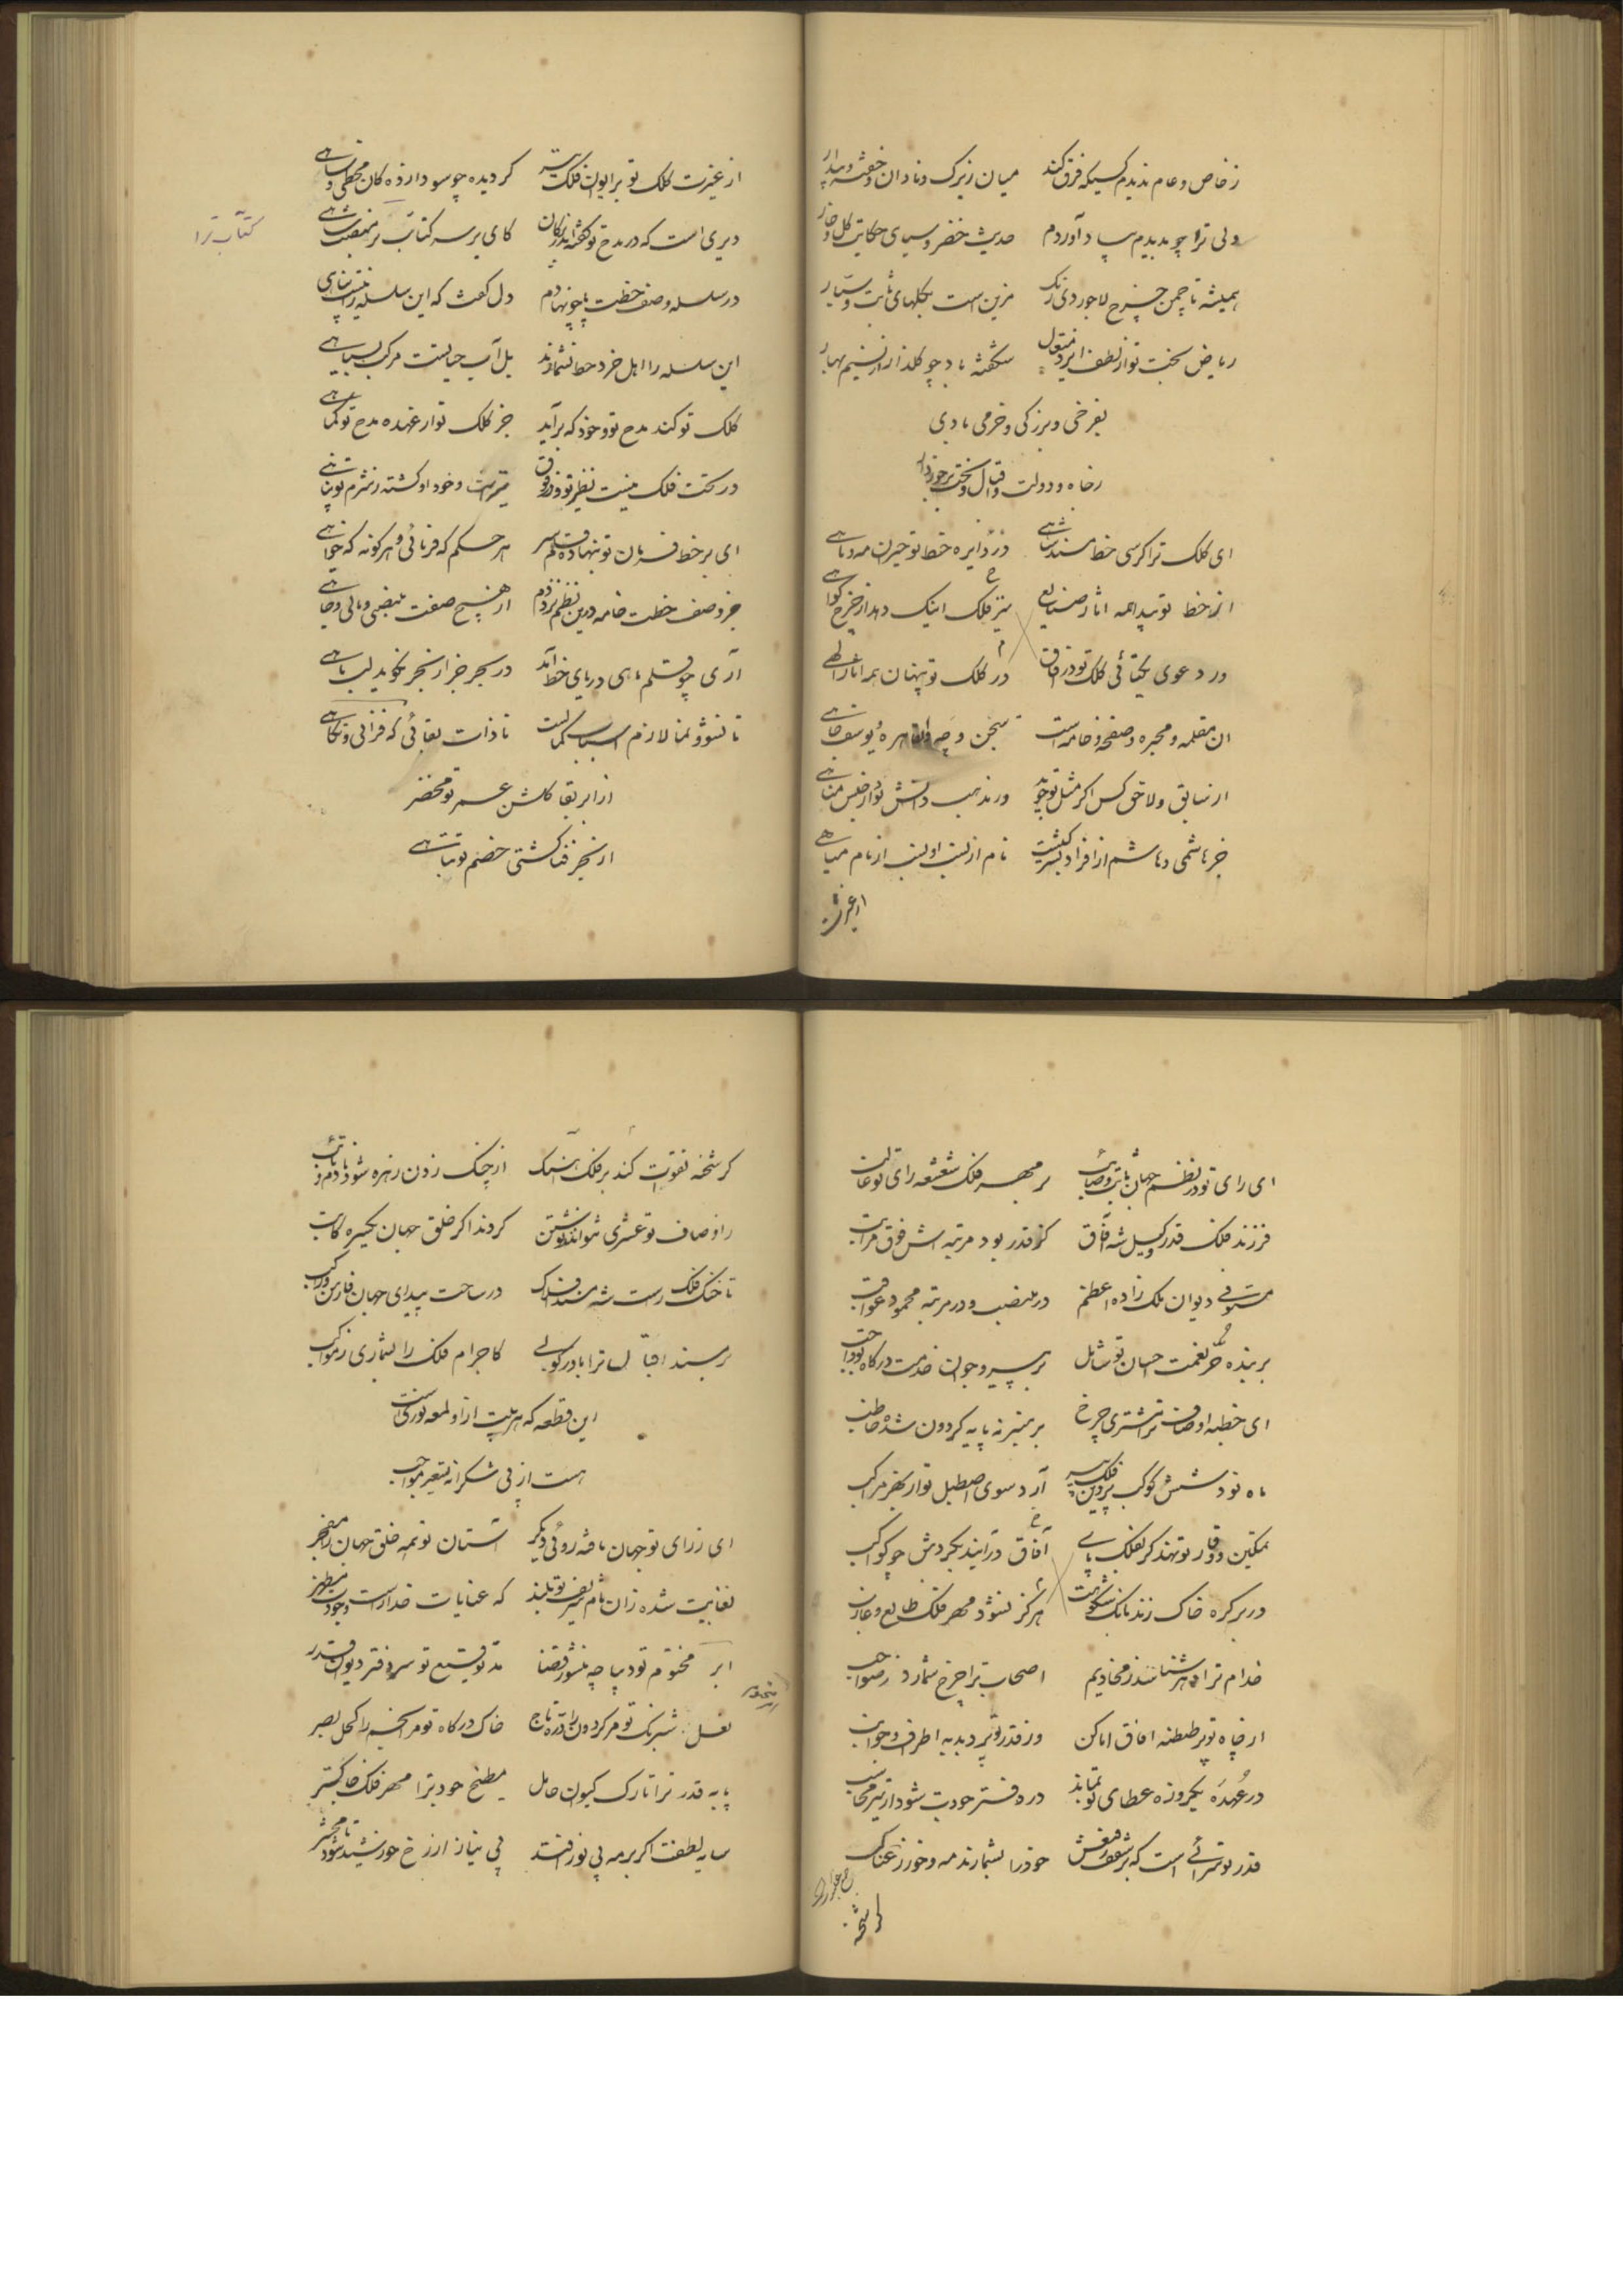 ز خاص و عام ندیدم کسیکه فرق کند میان زیرک و نادان و خفته و بیدار
ولی ترا چو بدیدم بیاد آوردم حدیث خضر و سیمای حکایت گل و خار
همیشه تا چمن چرخ لاجوردی رنگ مزین است بگلهای ثابت و سیار
ریاض بخت تو از لطف ایزد متعال شکفته باد چو گلذار از نسیم بهار
بفرخی و بزرگی و خرمی بادی
ز جاه و دولت و اقبال و بخت برخوردار
ای کلک ترا کرسی خط مسند شاهی در دایره خط تو حیران مه و ماهی
از خط تو پیدا همه آثار صنایع تیر فلک اینک دهد از چرخ گواهی
در دعوی یکتائی کلک تو در آفاق در کلک تو پنهان همه آثار الهی
آن مقلمه و محبره و صفحه و خامه است سجن و چه و یوسف جاهی
از سابق و لاحق کس اگر مثل تو جوید در مذهب دانش بود از جنس مناهی
جز هاشمی و هاشم از افراد بشر نیست نام از نسب او نسب از نام مباهی
از غیرت
از غیرت کلک تو بر ایوان فلک تیر گردیده چو سودازده کان مخطی و ساهی
دیری است که در مدح تو گفتند بزرگان کای بر سر کتاب بر منصب شاهی
کتاب ترا
در سلسله وصف خطت پا چو نهادم دل گفت که این سلسله را نیست تناهی
این سلسله را اهل خرد خط نشمارند بل آب حیاتست مرکب بسیاهی
کلک تو کند مدح تو و خود که برآید جز کلک تو از عهده مدح تو کماهی
در تحت فلک نیست نظیر تو و در فوق تیر است و خود او گشته ز شرم تو پناهی
ای بر خط فرمان تو بنهاده قلم سر هر حکم که فرمائی و هر گونه که خواهی
جز وصف خطت خامه درین نظم نزد دم از هیچ صفت منصبی و مالی و جاهی
آری چو قلم ماهی دریای خط آمد در بحر جز از بحر نگوید لب ماهی
تا نشو و نما لازم اسباب کمالست تا ذات بقائی که فزائی و نکاهی
از ابر بقا گلشن عمر تو مخضر
از بحر فنا کشتی خصم تو تباهی
ای رای تو در نظم جهان ثابت و صائب بر مهر فلک شعشعه رای تو غالب
فرزند فلک قدر وکیل شه آفاق کز قدر بود مرتبه اش فوق مراتب
مستوفی دیوان ملک زاده اعظم در منصب و در مرتبه محمود عواقب
بر بنده و حر نعمت احسان تو شامل بر پیر و جوان خدمت درگاه تو واجب
ای خطبه اوصاف ترا مشتری چرخ بر منبر نه پایه گردون شده خاطب
ماه نو و شش کوکب پروین فلک آرد سوی اصطبل تو از بهر مراکب
تمکین و وقار تو نهد گر بفلک پای آفاق درآیند بگردش چو کواکب
در بر کره خاک زند بانگ شکوهت هرگز نشود مهر فلک طالع و غارب
خدام ترا دهر شناسند ز مخادیم اصحاب ترا چرخ شمارد ز صواحب
از جاه تو پر طنطنه آفاق اماکن وز قدر تو پر دبدبه اطراف و جوانب
در عهده یکروزه عطای تو نماند در دفتر جودت شود ار تیر محاسب
قدر تو سرائی است که بر سقف رفیعش خود را بشمارند مه و خور ز عناکب
گر شحنه
گر شحنه تقویت کند بر فلک آهنگ از چنگ زدن زهره شود نادم و تائب
ز اوصاف تو عشری نتوانند نوشتن گردند اگر خلق جهان یکسره کاتب
تا خنگ فلک در ساحت بیدای جهان فارس و راکب
بر مسند اقبال ترا باد رکوبی کاجرام فلک را بشماری ز مواکب
این قطعه که هر بیت از او لمعه نوریست
هست از پی شکرانه تسعیر مواجب
ای ز رای تو جهان یافته رونق دیگر آستان تو همه خلق جهان را مفخر
بغایت شده زان نام شریف تو بلند که عنایات خدا راست وجودت مظهر
ابر مختوم تو دیباچه منشور قضا مد توقیع تو سر دفتر دیوان قدر
نعل شبرنگ تو مر گردون را دره تاج خاک درگاه تو مر انجم را کحل بصر
پایه قدر ترا تارک کیوان حامل مطبخ جود ترا مهر فلک خاکستر
سایه لطفت اگر بر مه بی نور افتد بی نیاز از رخ خورشید شود تا محشر